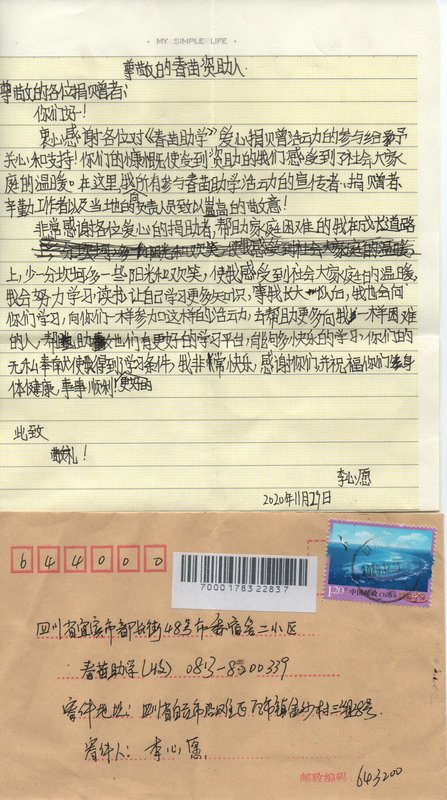 · MY SIMPLE LIFE ·
尊敬的春苗资助人
尊敬的各位捐赠者：
你们好！
衷心感谢各位对《春苗助学》爱心捐贝曾活动的参与给予
关心和支持！你们的慷慨使受到资助的我们感受到了社会大家
庭的温暖。在这里，我所有参与春苗助学活动的宣传者、捐赠者、
辛勤工作者以及当地的负责人员致以崇高的敬意！
非常感谢各位爱心的捐助者，帮助家庭困难的我在成长道路
上，少一分坎坷多一些阳光和欢笑，使我感受到社会大家庭的温暖，
我会努力学习，读书，让自己学习更多知识，等我长大以后，我也会向
你们学习，向你们一样参加这样的活动，去帮助更多向我一样困难
的人，帮助他们有更好的学习平台，能够快乐的学习，你们的
无私奉献使我得到学习条件，我非常快乐，感谢你们，并祝福你们身
体健康，事事顺利！
此致
敬礼！
李心愿
2020年11月29日
644000
1.20
中国邮政 CHINA
7000178322837
四川省宜宾市都长街48号市委宿舍二小区
春苗助学(收) 0813-8200339
寄件地址：四川省自贡市沿滩区 镇金沙村三组8号
寄件人：李心愿
邮政编码 643200